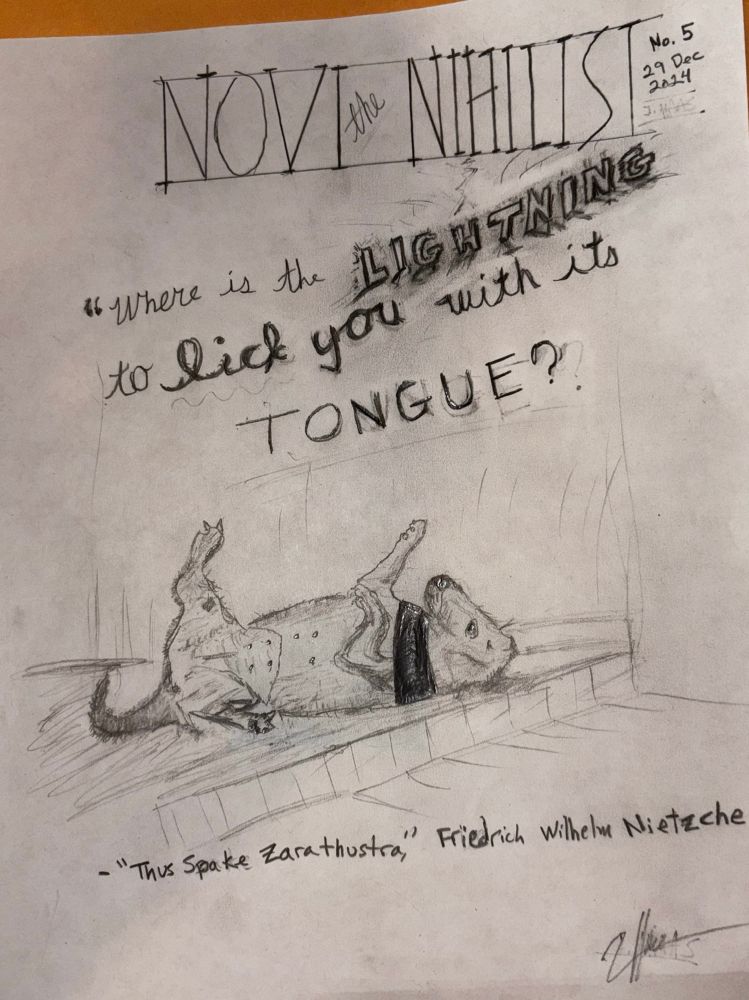 NOVI the NIHILIST
No. 5
29 Dec
2024
"Where is the LIGHTNING
to lick you with its
TONGUE?
- "Thus Spake Zarathustra," Friedrich Wilhelm Nietzche